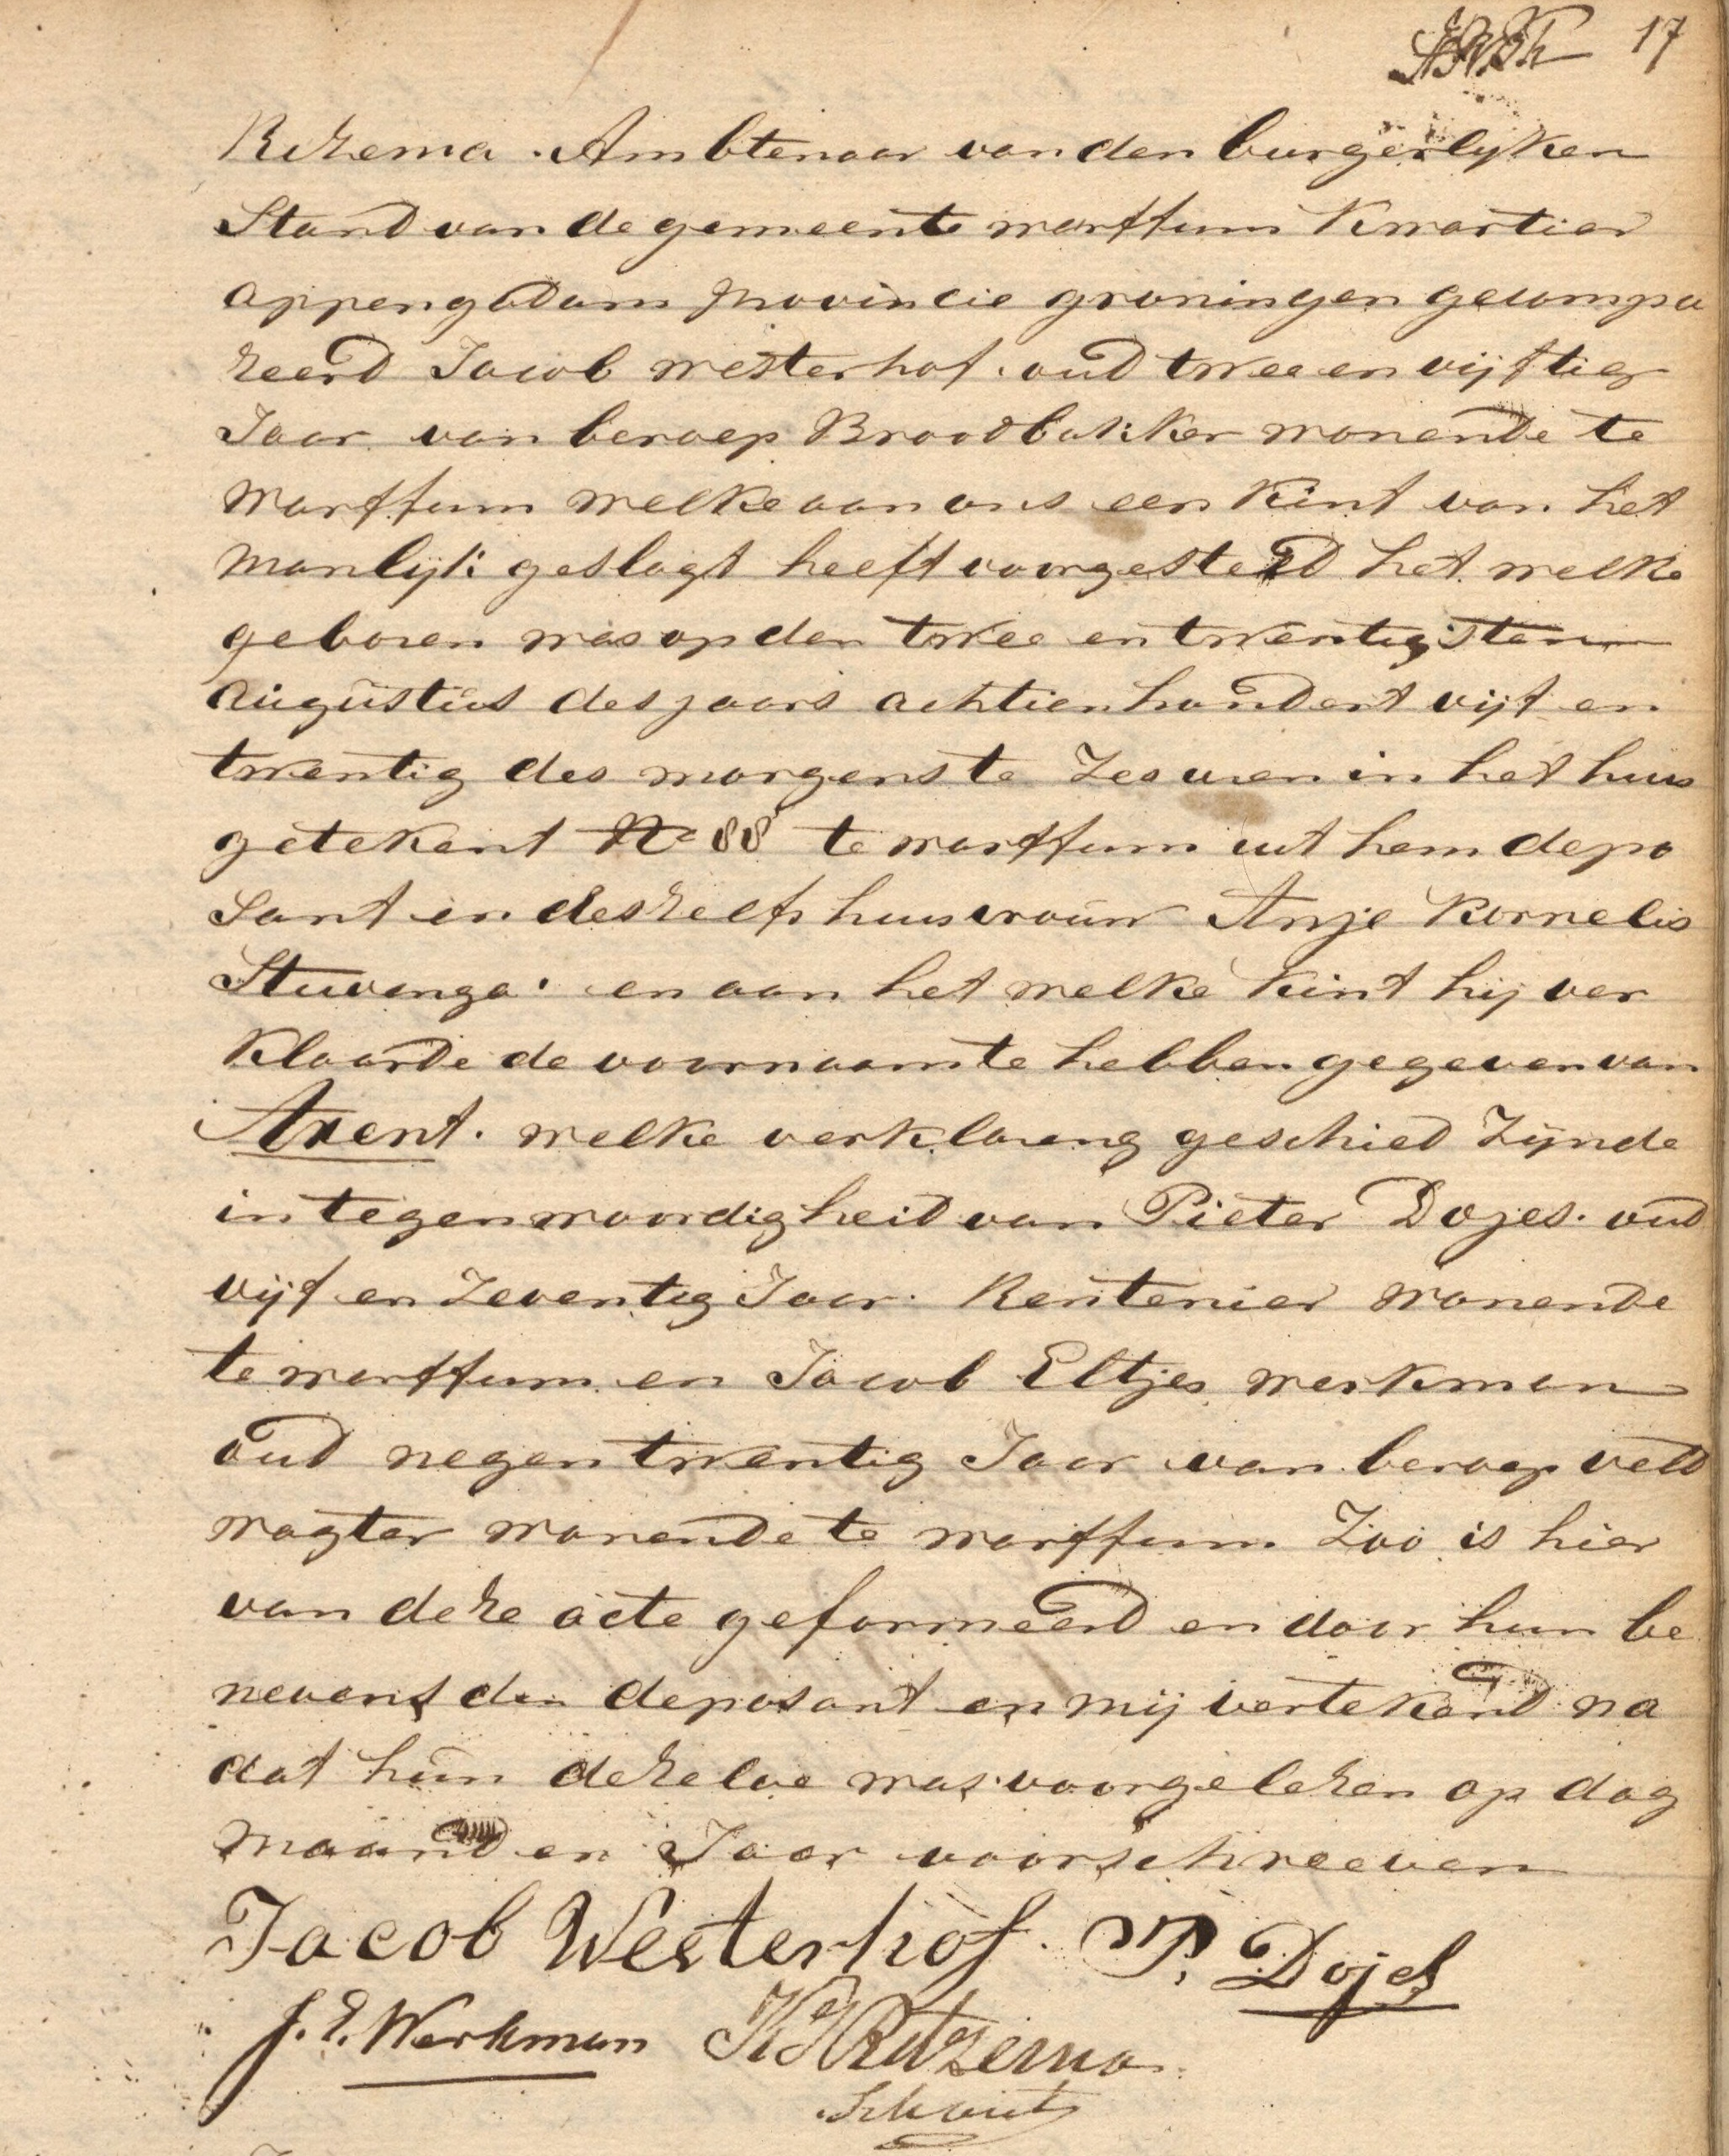 17
Ritzema Ambtenaar van den burgerlyken
Stand van de gemeente warffum Kwartier
appengedam provincie groningen gecompa
reerd Jacob westerhof oud twee en vijftig
Jaar van beroep Broodbakker wonende te
warffum welke aan ons een Kint van het
manlijk geslagt heeft voorgesteld het welke
geboren was op den twee en twentigsten
augustus des jaars achtien hondert vijf en
twentig des morgens te Zes uren in het huis
getekent No 88 te warffum uit hem depo
sant en deszelfs huisvrouw Anje Kornelis
Stuvenga en aan het welke kint hij ver
klaarde de voornaam te hebben gegeven van
Arent. welke verklaring geschied Zijnde
in tegenwoordigheid van Pieter Dojes. oud
vijf en Zeventig Jaar. Rentenier wonende
te warffum en Jacob Eltjes werkman
oud negen twentig Jaar van beroep veld
wagter wonende te warffum Zoo is hier
van deze acte geformeerd en door hun be
nevens den deposant en mij vertekend na
dat hun dezelve was voorgelezen op dag
maand en Jaar voorschreeven
Jacob Westerhof. P. Dojes
J. E. Werkman K Ritzema
Schout